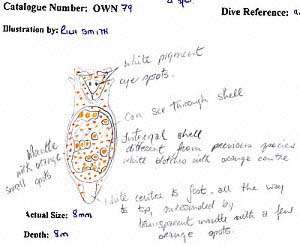 a spe.
Catalogue Number: OWN 79
Dive Reference: a.
Illustration by: SMITH
White pigment
eye spots.
Can see through shell
Internal shell
different from previous species
white blotches with orange centre
Mantle
with orange
small spots
white centre to foot. all the way
to top, surrounded by
transparent mantle with a few
orange spots.
Actual Size: 8mm
Depth: 8m